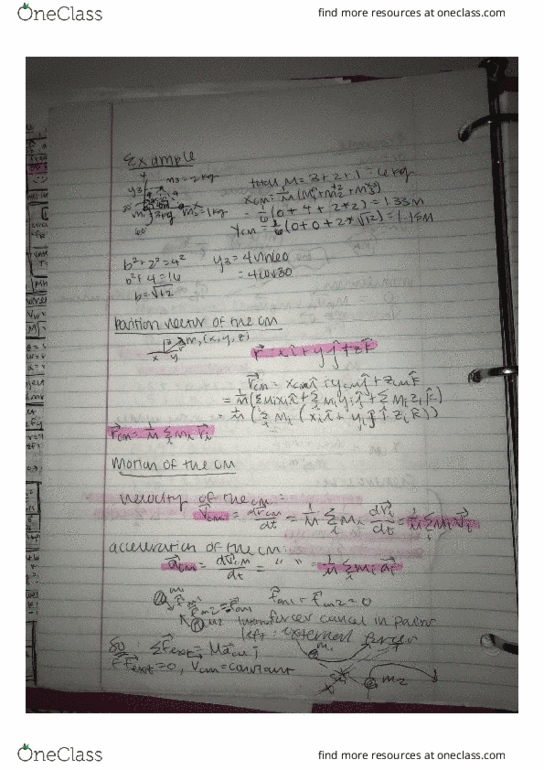 OneClass
find more resources at oneclass.com
Example
y
m₃=2kg
y3
m₂=1kg
3kg
60°
total M = 3+2+1 = 6kg
= 1/6 (0+4+2*2) = 1.33m
Ycm = 1/6 (0+0+2*√12) = 1.15m
b²+2²=4²
b²+4=16
b=√12
y3 = 4sin60
= 4cos30
Position vector of the CM
m, (x,y,z)
z
x y
r⃗ = xî+yĵ+zk̂
r⃗cm = xcmî+ycmĵ+zcmk̂
= 1/M (Σmixiî+Σmiyiĵ+Σmizik̂)
= 1/M (Σ mi (xiî+yiĵ+zik̂))
r⃗cm = 1/M Σ mi r⃗i
Motion of the CM
velocity of the cm =
v⃗cm = dr⃗cm/dt = 1/M Σ mi dr⃗i/dt = 1/M Σ mi v⃗i
acceleration of the CM:
a⃗cm = dv⃗cm/dt = " " = 1/M Σ mi a⃗i
m1
m2
Fm1 - Fm2 = 0
forces cancel in pairs
left: external forces
m1
So ΣF⃗ext = Ma⃗cm;
if F⃗ext=0, Vcm=constant
m2
OneClass
find more resources at oneclass.com